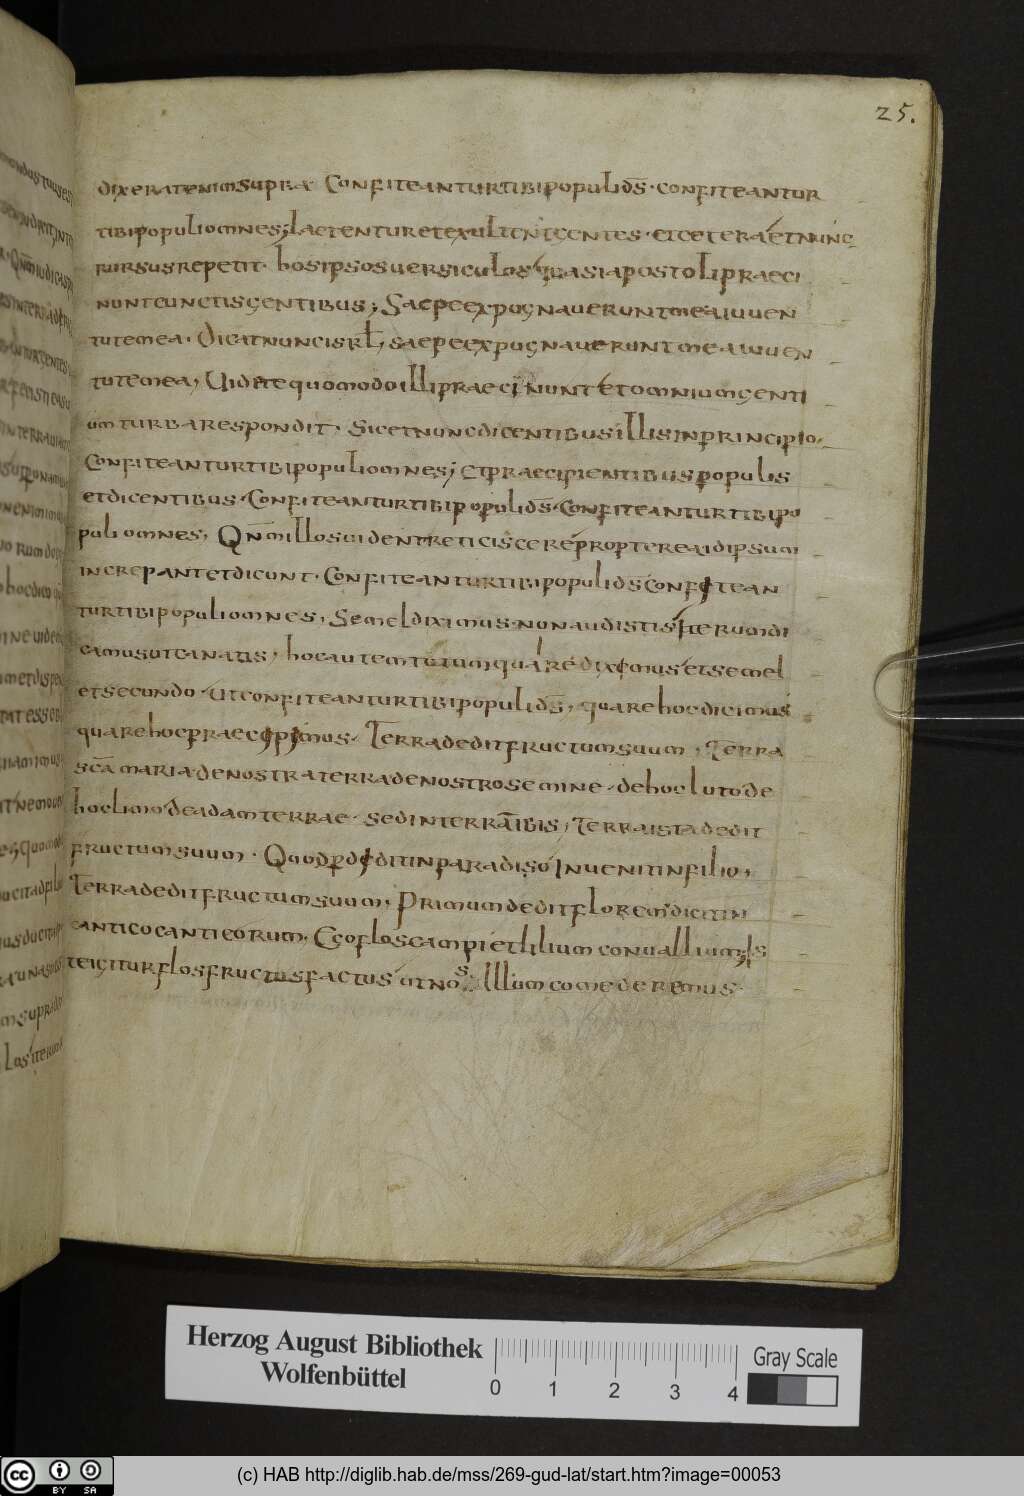 25.
dixerat enim supra Confiteantur tibi populi d̅s · confiteantur
tibi populi omnes; laetentur et exultent gentes · et cetera et nunc
rursus repetit · hos ipsos versiculos quasi apostoli praeci
nunt cunctis gentibus; Saepe expugnaverunt me a iuven
tute mea · Dicat nunc isrl̅, saepe expugnaverunt me a iuven
tute mea, Videte quomodo illi praecinunt et omnium genti
um turba respondit · Sicet nunc dicentibus illis in principio ·
Confiteantur tibi populi omnes; Et praecipientibus populis
et dicentibus · Confiteantur tibi populi d̅s · Confiteantur tibi po
puli omnes, Qn̅m illos vident reticiscere propterea idipsum
increpant et dicunt · Confiteantur tibi populi ds confitean
tur tibi populi omnes, Semel diximus non audistis Iterum di
camus ut canatis, hoc autem totum quare diximus et semel
et secundo · Ut confiteantur tibi populi d̅s, quare hoc dicimus
quare hoc praecipimus · Terra dedit fructum suum, Terra
sc̅a maria de nostra terra de nostro semine · de hoc luto de
hoc limo de adam terrae · sed in terra̅ ibis, Terra ista dedit
fructum suum · Quod p̱didit in paradiso Invenit in filio,
Terra dedit fructum suum, Primum dedit florem dicit in
cantico canticorum, Ego flos campi et lilium convallium; Is
te igitur flos fructus factus ut nos Illum comederemus ·
Herzog August Bibliothek
Wolfenbüttel
0 1 2 3 4
Gray Scale
cc BY SA
(c) HAB http://diglib.hab.de/mss/269-gud-lat/start.htm?image=00053